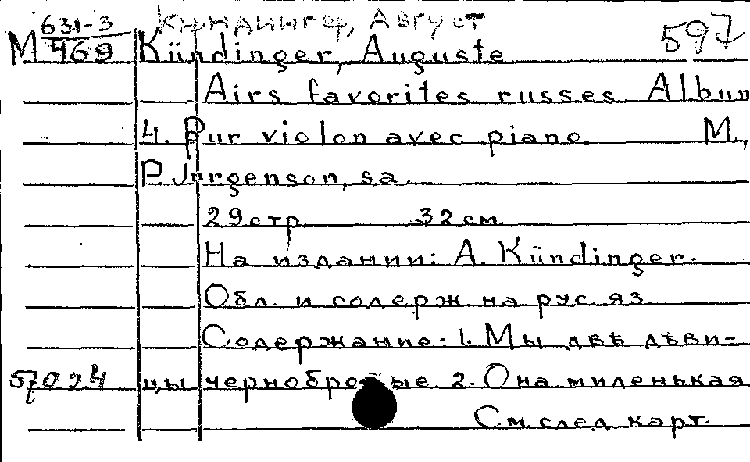 631-3 Киндингер, Август 597
М 469 Kündinger, Auguste
Airs favorites russes Album
4. Pur violon avec piano. M.,
P. Jurgenson, sa.
29 стр 32 см
На издании: A. Kündinger.
Обл. и содерж на рус яз
Содержание: 1. Мы двѣ дѣви-
57024 цы чернобровые 2. Она миленькая
См. след карт.